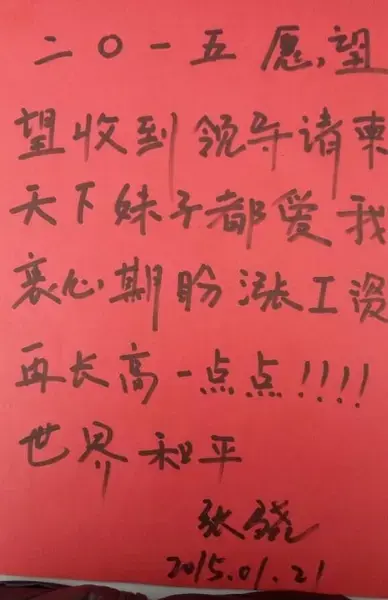 二〇一五愿望
望收到领导请柬
天下妹子都爱我
衷心期盼涨工资
再长高一点点!!!!
世界和平
张
2015.01.21